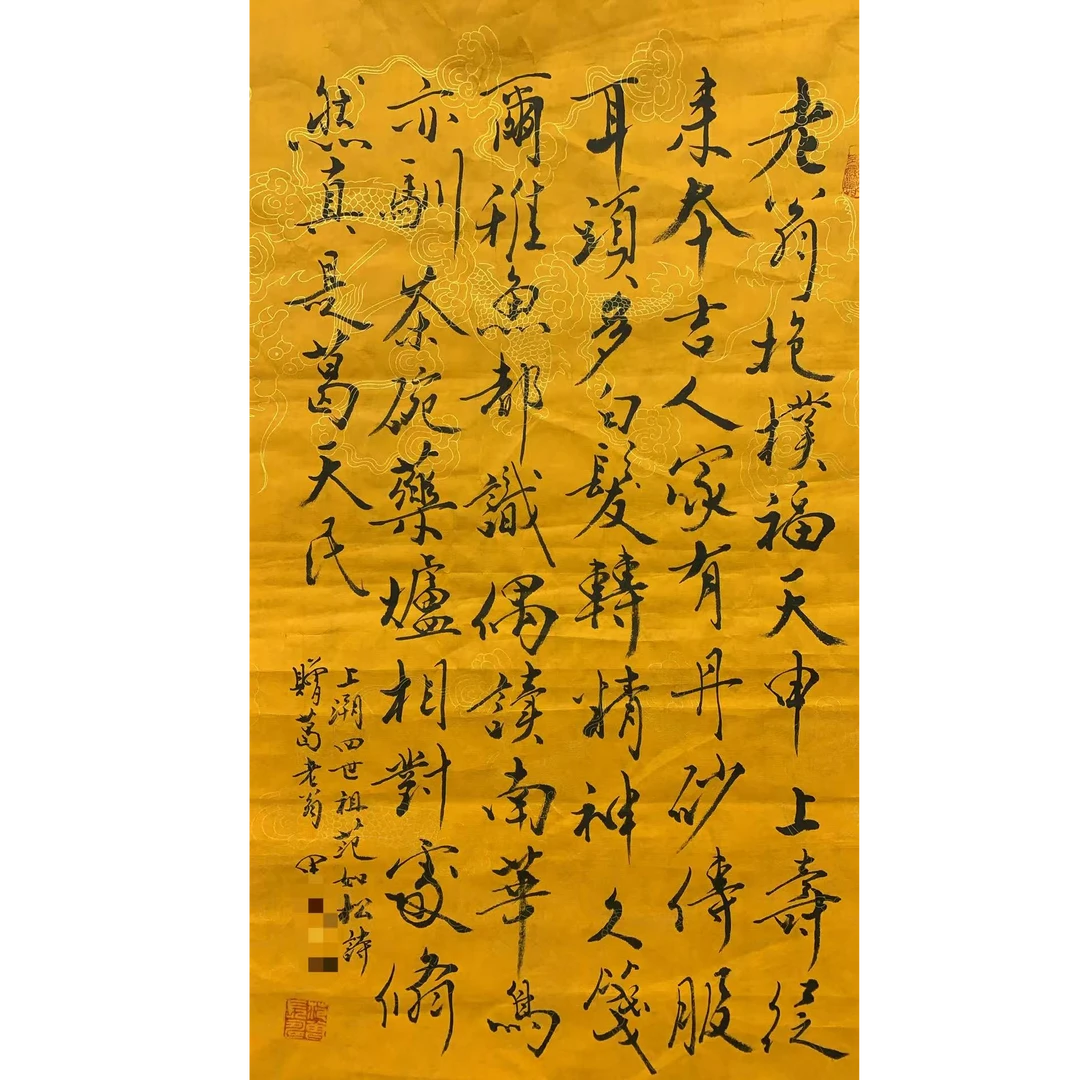 老翁抱樸福天申上壽從
来本吉人家有丹砂儔服
耳項多白髮轉精神久箋
爾雅魚都識偶讀南華鳥
亦馴茶碗藥爐相對處翛
然真是葛天民
上溯四世祖范如松詩
贈葛老翁